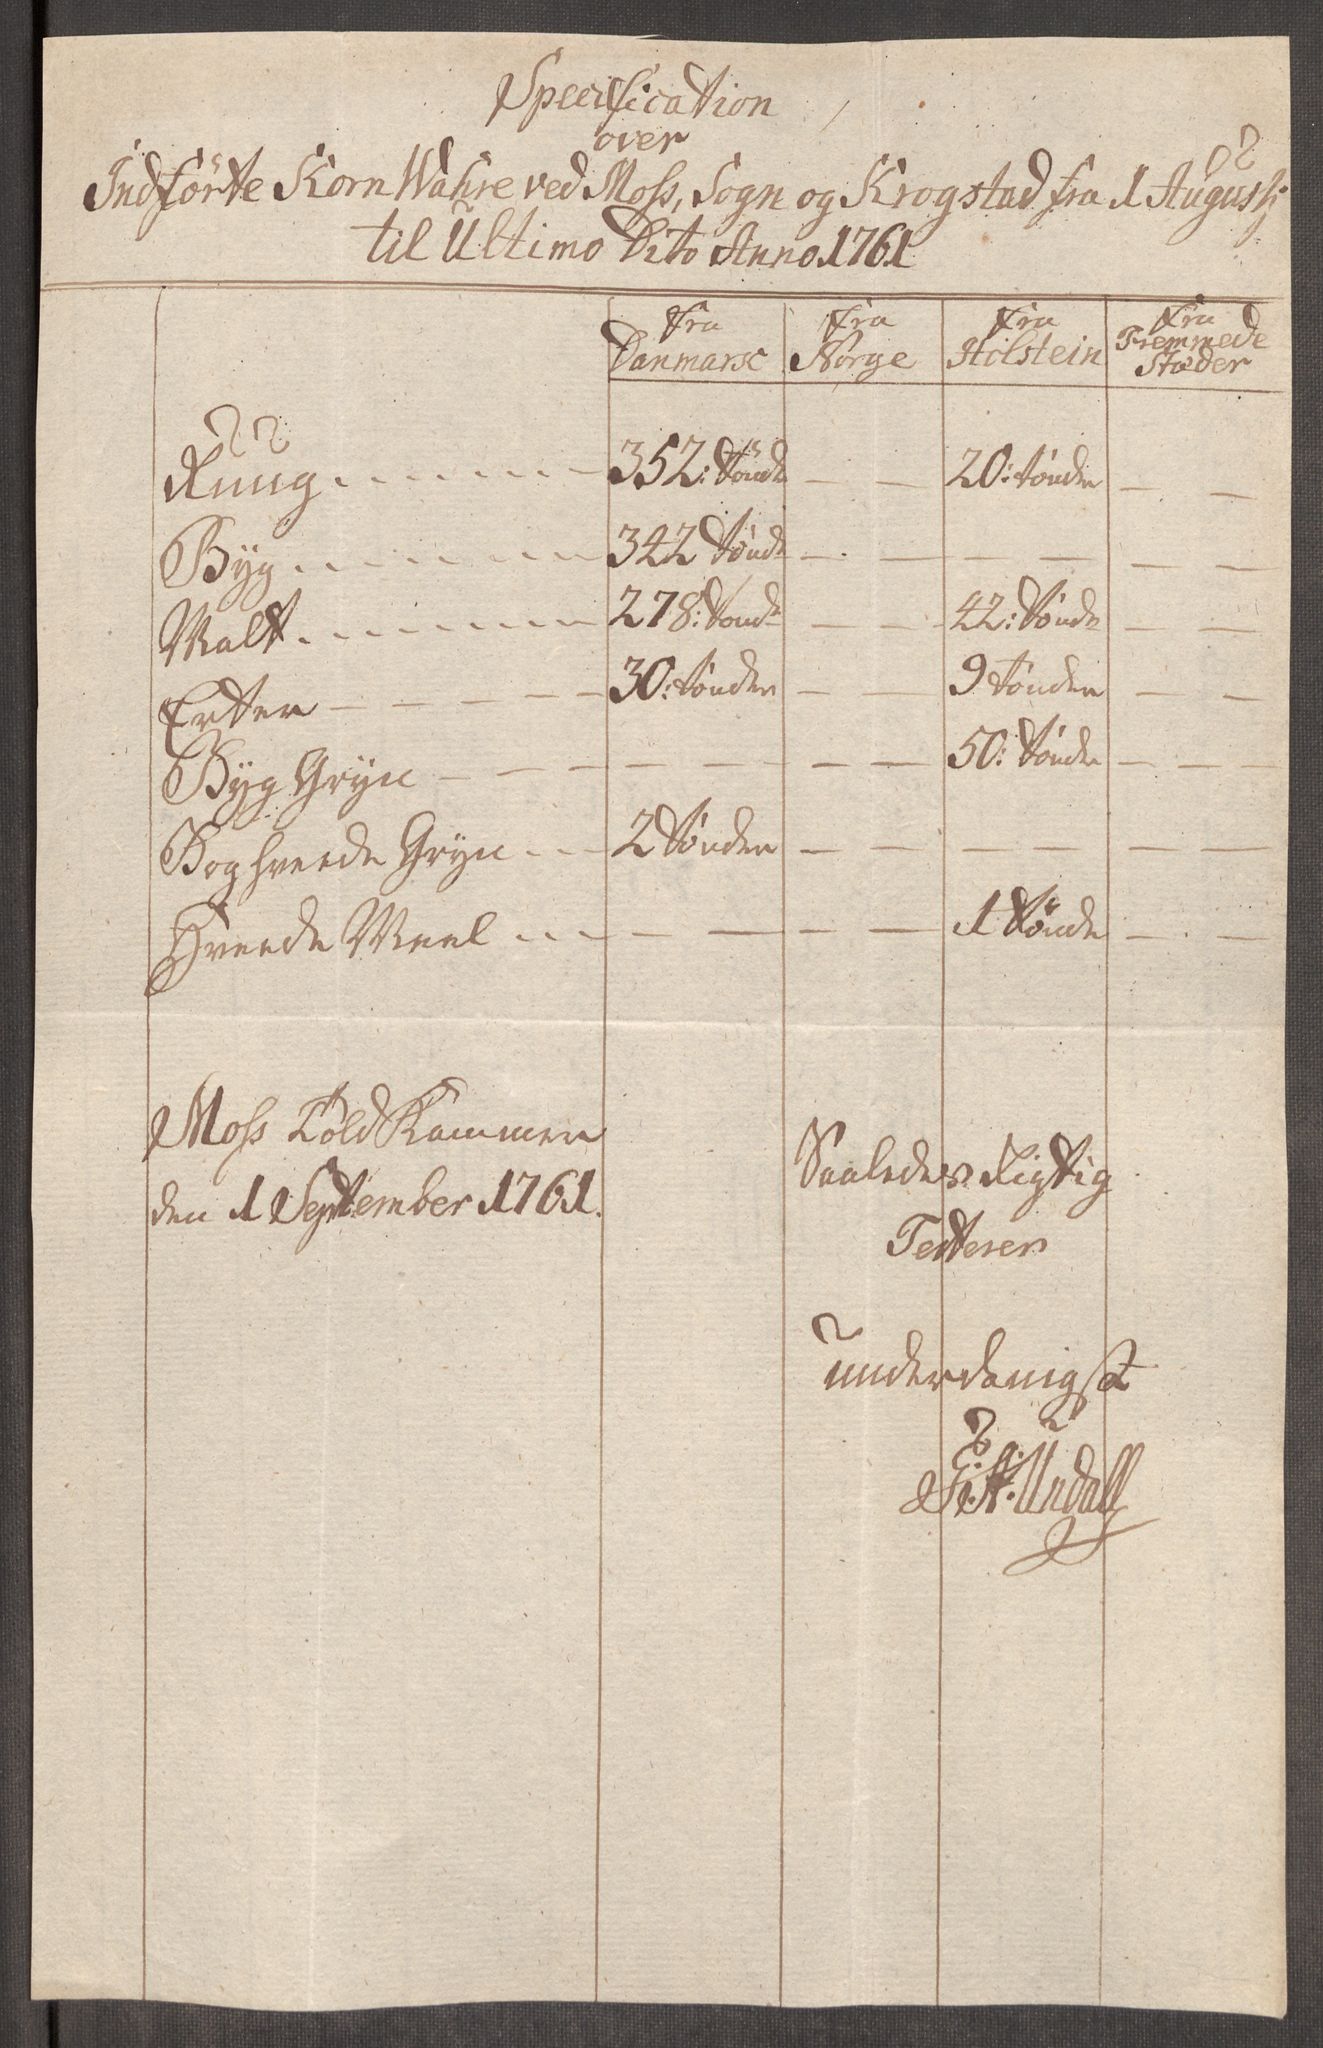 Specification
over
Indførte Korn Wahre ved Moss, Sogn og Krogstad fra 1 Augustj
til Ultimo Dito Anno 1761
fra Danmarc fra Norge fra Holstein fra Fremmede Stæder
Ruug . . . . . . 352: tønd — — 20: tønder — —
Byg . . . . . . 342 tønd — — — — — — —
Malt . . . . . . 278: tønd — — 42: tønde — —
Erter — — — — — 30: tønder — — 9 tønder — —
Byg Gryn — — — — — — — — 50: tønder — — —
Boghvede Gryn . . — 2 tønder — — — — — — —
Hvede Meel . . . — — — — 1 tønde — . —
Moss Told Kammer
den 1 September 1761.
Saaledes Rigtig
Testerer
underdanigst
Undall